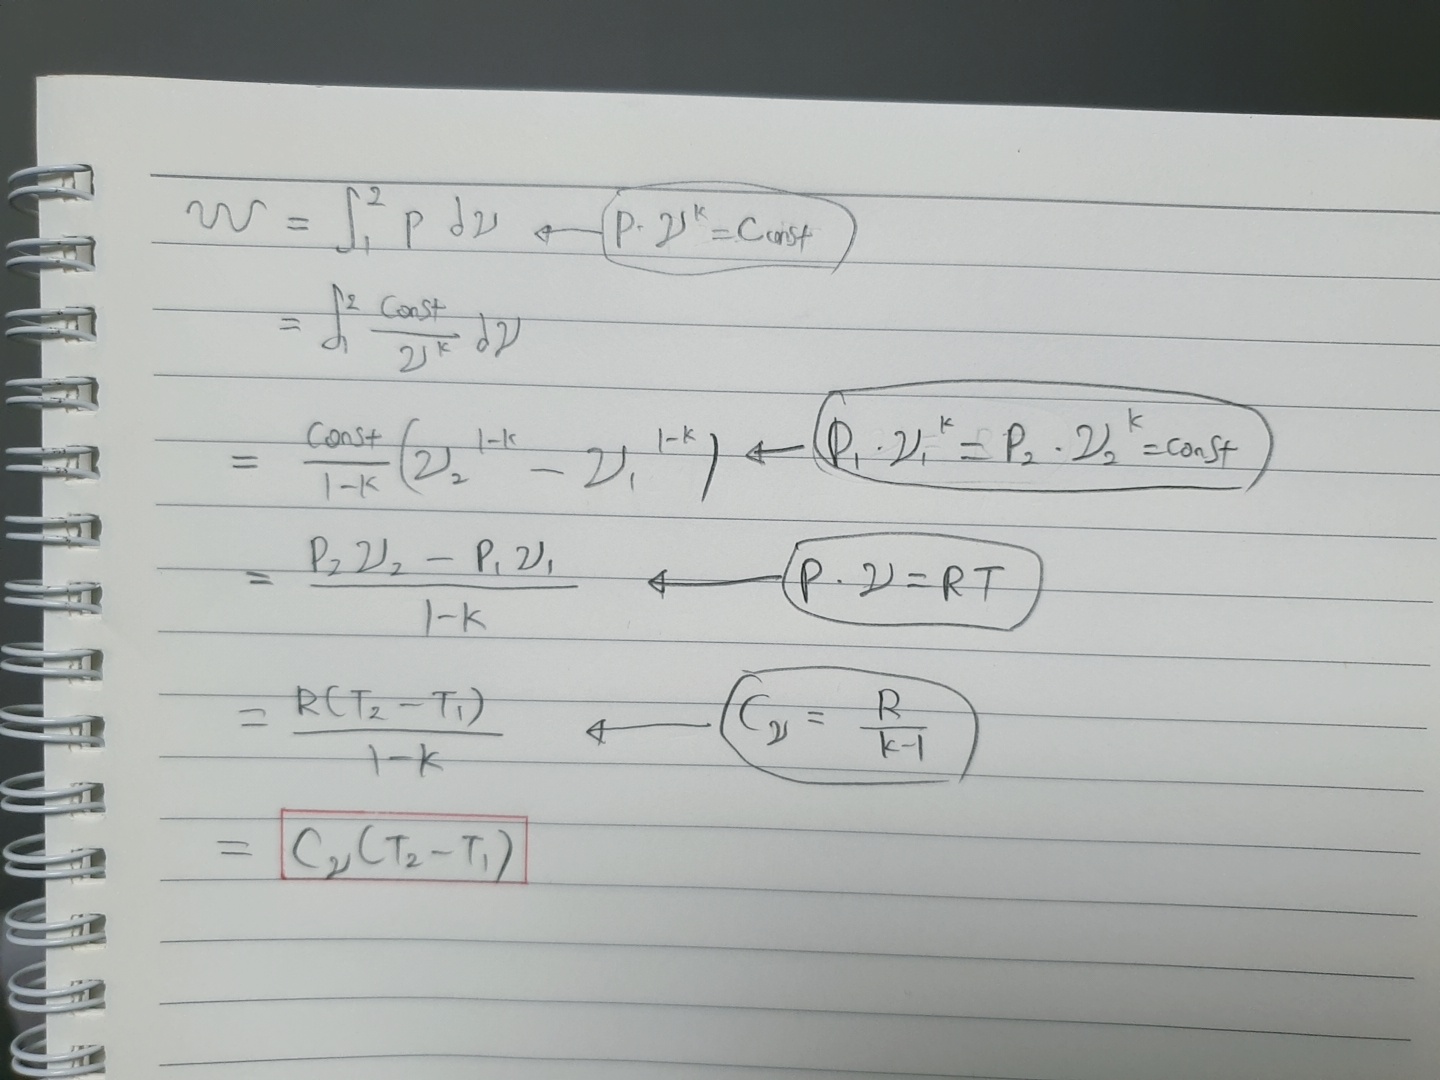 w = ∫₁² P dν ← P·ν^k = Const
= ∫₁² Const/ν^k dν
= Const/(1-k) (ν₂^(1-k) - ν₁^(1-k)) ← P₁·ν₁^k = P₂·ν₂^k = const
= (P₂ν₂ - P₁ν₁)/(1-k) ← P·ν = RT
= R(T₂-T₁)/(1-k) ← C_ν = R/(k-1)
= C_ν(T₂-T₁)